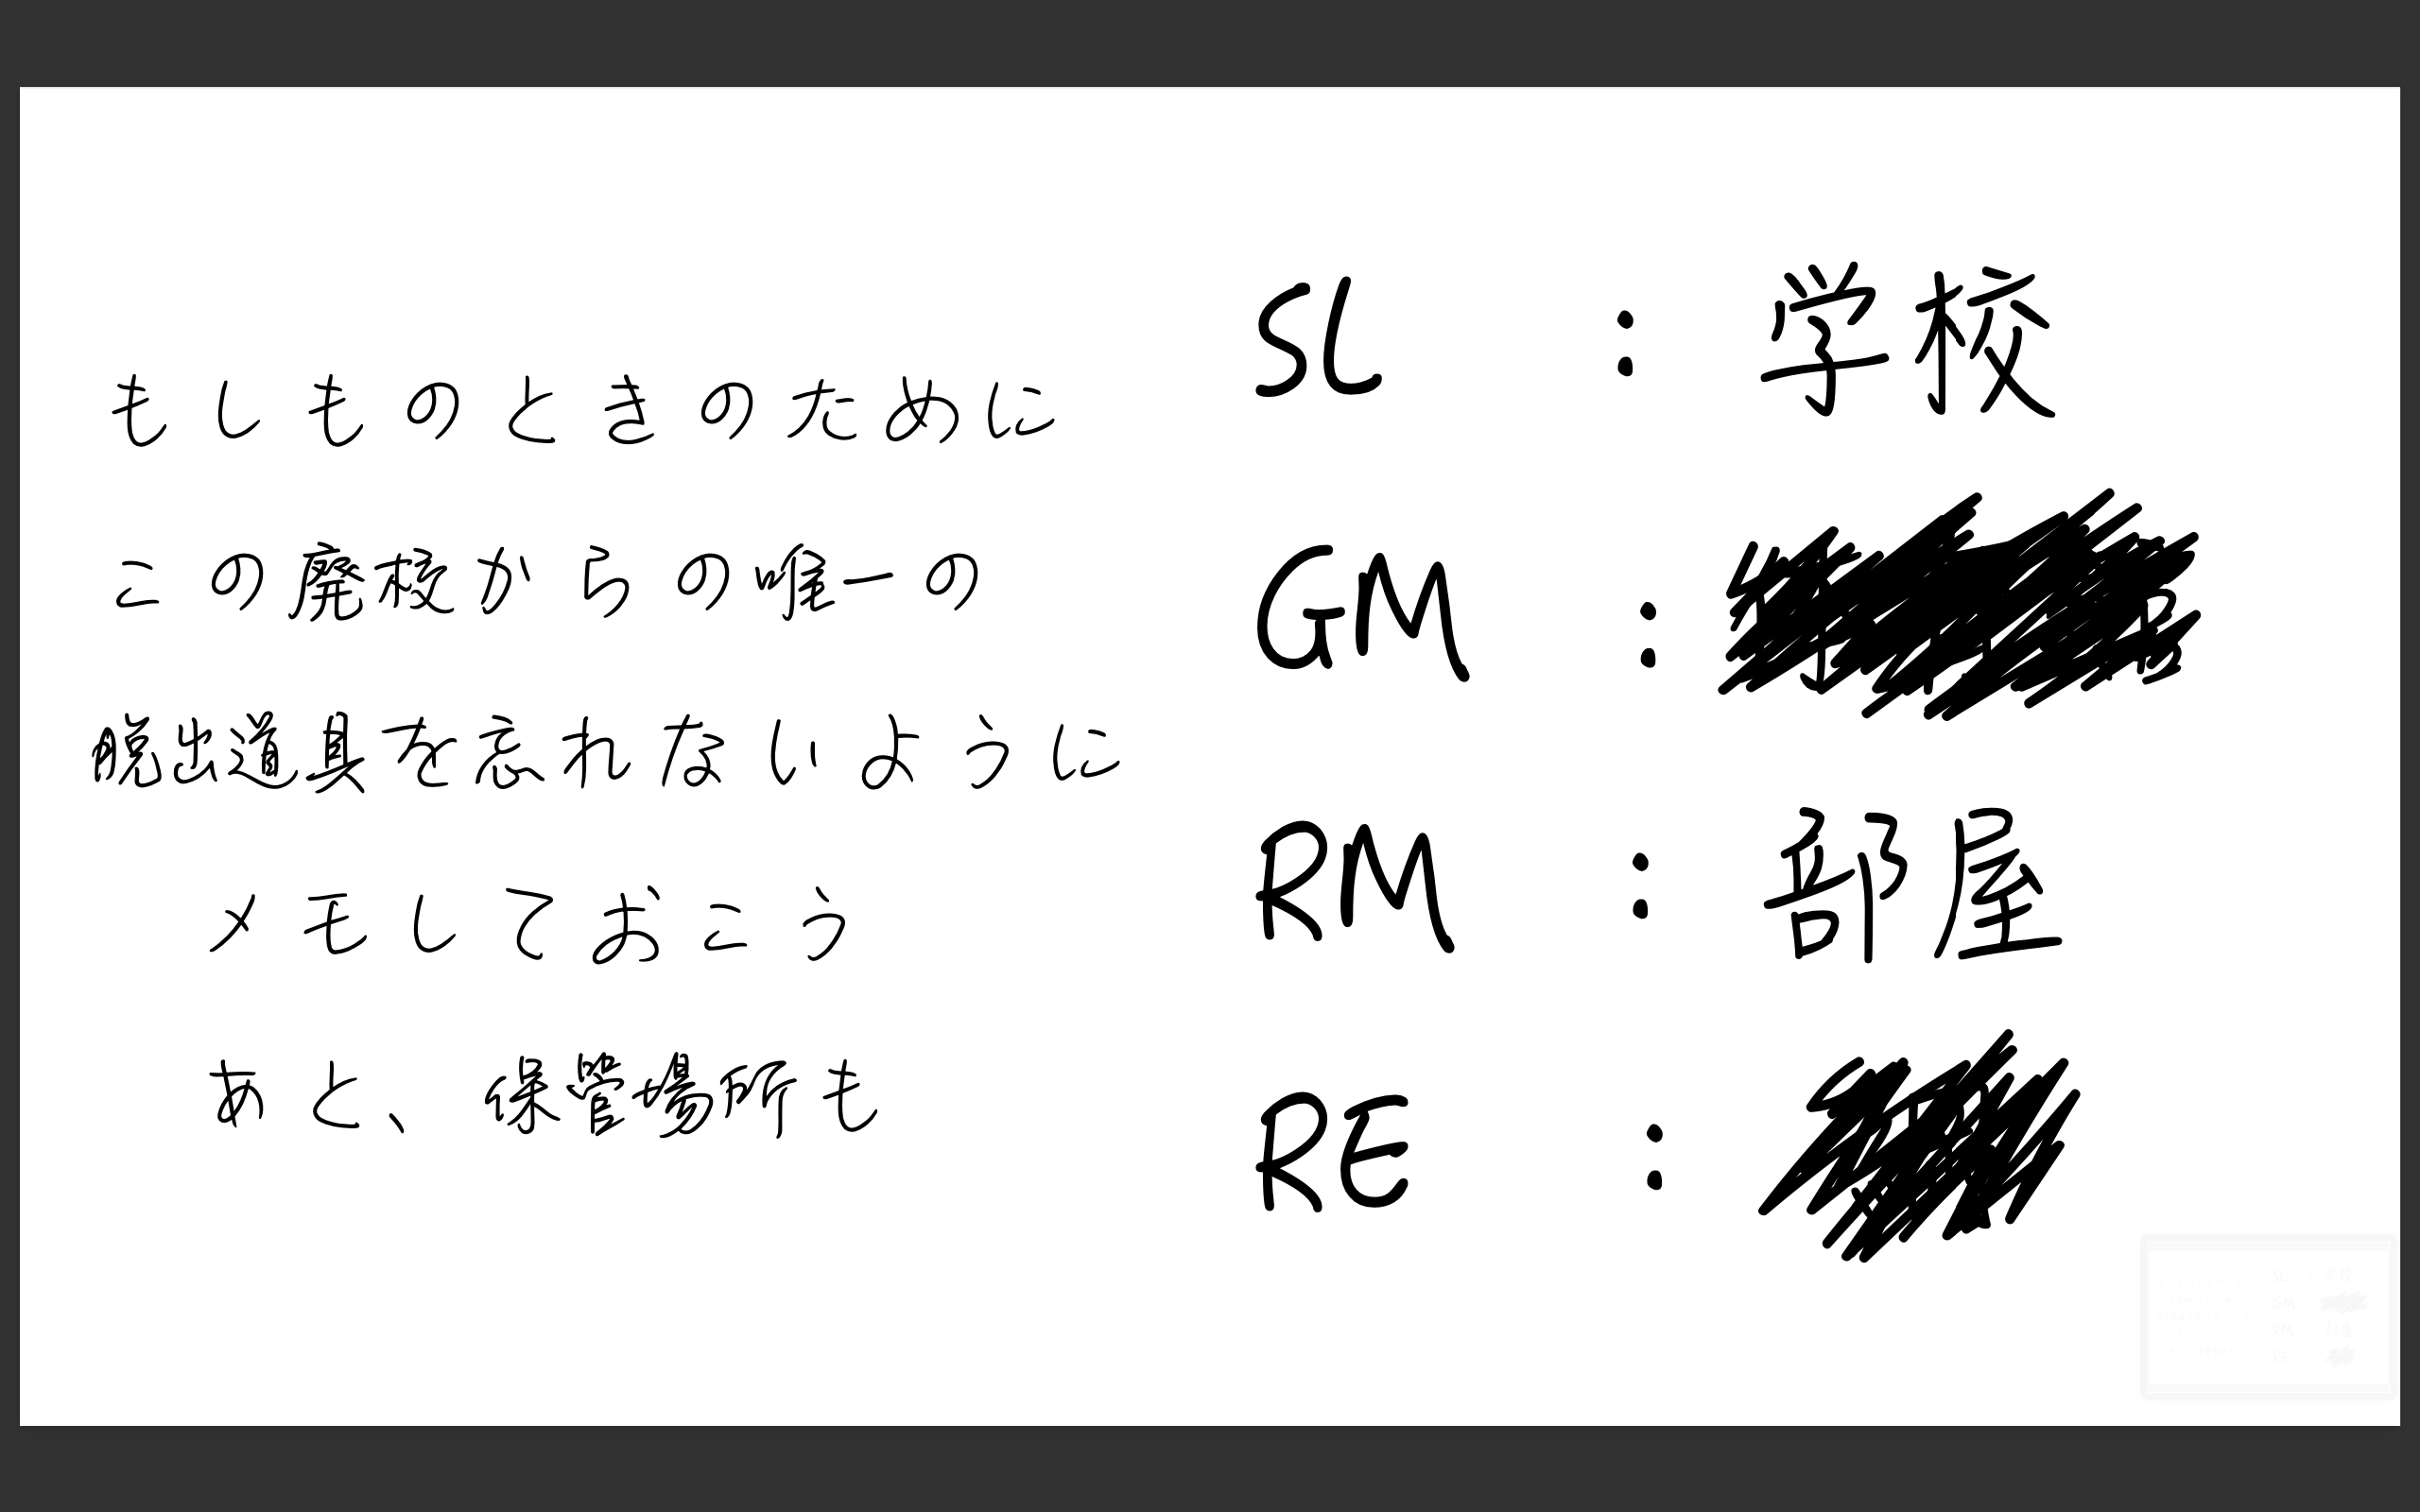 もしものときのために
この魔夜からの唯一の
脱出道具を忘れないように
メモしておこう
あと、保管場所も
SL : 学校
GM :
RM : 部屋
RE :